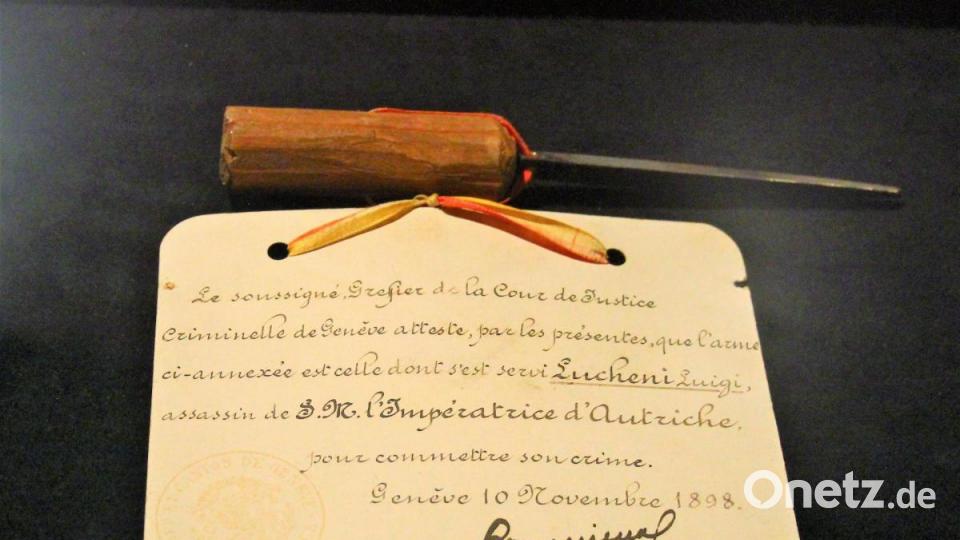 Le soussigné, Greffier de la Cour de Justice
Criminelle de Genève atteste, par les présentes, que l'arme
ci-annexée est celle dont s'est servi Lucheni Luigi,
assassin de S.M. l'Impératrice d'Autriche,
pour commettre son crime.
Genève 10 Novembre 1898.
Onetz.de